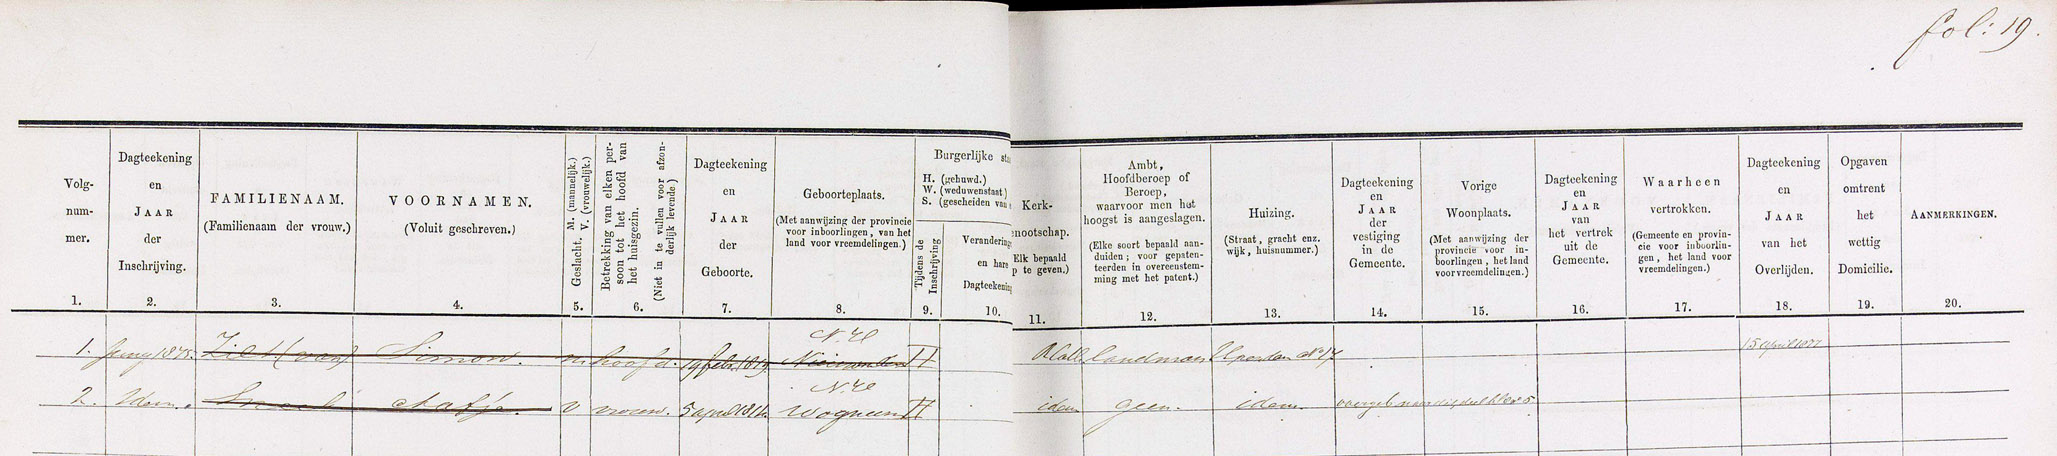 fol: 19.
Volg-
num-
mer.
1.
Dagteekening
en
JAAR
der
Inschrijving.
2.
FAMILIENAAM.
(Familienaam der vrouw.)
3.
VOORNAMEN.
(Voluit geschreven.)
4.
Geslacht. M. (mannelijk.)
V. (vrouwelijk.)
5.
Betrekking van elken per-
soon tot het hoofd van
het huisgezin.
(Niet in te vullen voor afzon-
derlijk levende.)
6.
Dagteekening
en
JAAR
der
Geboorte.
7.
Geboorteplaats.
(Met aanwijzing der provincie
voor inboorlingen, van het
land voor vreemdelingen.)
8.
Burgerlijke sta
H. (gehuwd.)
W. (weduwenstaat.)
S. (gescheiden van
Tijdens de
Inschrijving
9.
Verandering
en hare
Dagteekening
10.
Kerk-
nootschap.
Elk bepaald
p te geven.)
11.
Ambt,
Hoofdberoep of
Beroep,
waarvoor men het
hoogst is aangeslagen.
(Elke soort bepaald aan-
duiden; voor gepaten-
teerden in overeenstem-
ming met het patent.)
12.
Huizing.
(Straat, gracht enz.
wijk, huisnummer.)
13.
Dagteekening
en
JAAR
der
vestiging
in de
Gemeente.
14.
Vorige
Woonplaats.
(Met aanwijzing der
provincie voor in-
boorlingen, het land
voor vreemdelingen.)
15.
Dagteekening
en
JAAR
van
het vertrek
uit de
Gemeente.
16.
Waarheen
vertrokken.
(Gemeente en provin-
cie voor inboorlin-
gen, het land voor
vreemdelingen.)
17.
Dagteekening
en
JAAR
van het
Overlijden.
18.
Opgaven
omtrent
het
wettig
Domicilie.
19.
AANMERKINGEN.
20.
1. Simon. m hoofd. 19 febr. 1819. N.H. H landman 15 april 1877
2. Idem. v vrouw. 5 april N.H. Wognum H idem geen. idem